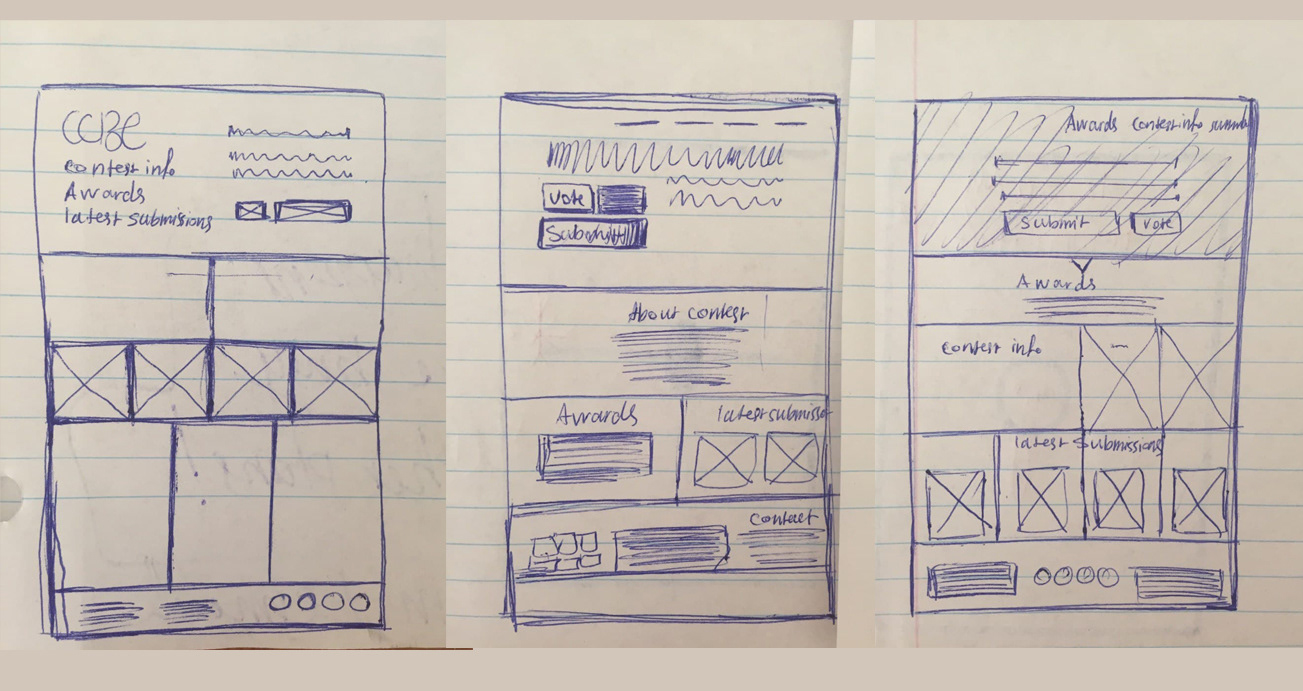 contest info
Awards
latest submissions
Vote
About contest
Awards
latest submission
Contact
Awards contest info
Submit Vote
Awards
Contest info
latest submissions